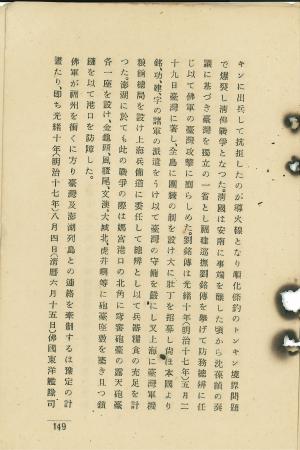 キンに出兵して抗拒したのが導火線となり順化條約のトンキン境界問題
で爆發し清佛戰爭となつた。清國は安南に事端を釀した頃から沈葆禎の奏
議に基づき臺灣を獨立の一省とし福建巡撫劉銘傳を擧げて防務總辨に任
じ以て佛軍の臺灣攻擊に備らしめた。劉銘傳は光緒十年(明治十七年)五月二
十九日臺灣に著し、全島に團練の制を設け大に壯丁を招募し尙ほ本國より
銘、功、建、字の諸軍の派遣をうけ以て臺灣の守備を嚴にし又上海に臺灣軍機
糧餉總局を設け上海兵備道に委任して總辨とし以て兵器糧食の充足を計
つた。澎湖に於ても此の戰爭の際は媽宮港口の北角に穹窖砲臺の露天砲臺
各一座を設け、金龜頭、風櫃尾、文澳、大城北、虎井嶼等に砲臺座數を築き且つ鎖
鏈を以て港口を防障した。
佛軍が福州を衝くに方り臺灣及澎湖列島との連絡を牽制するは豫定の計
畫たり、卽ち光緒十年、(明治十七年)八月四日(淸曆六月十五日)佛國東洋艦隊司
149